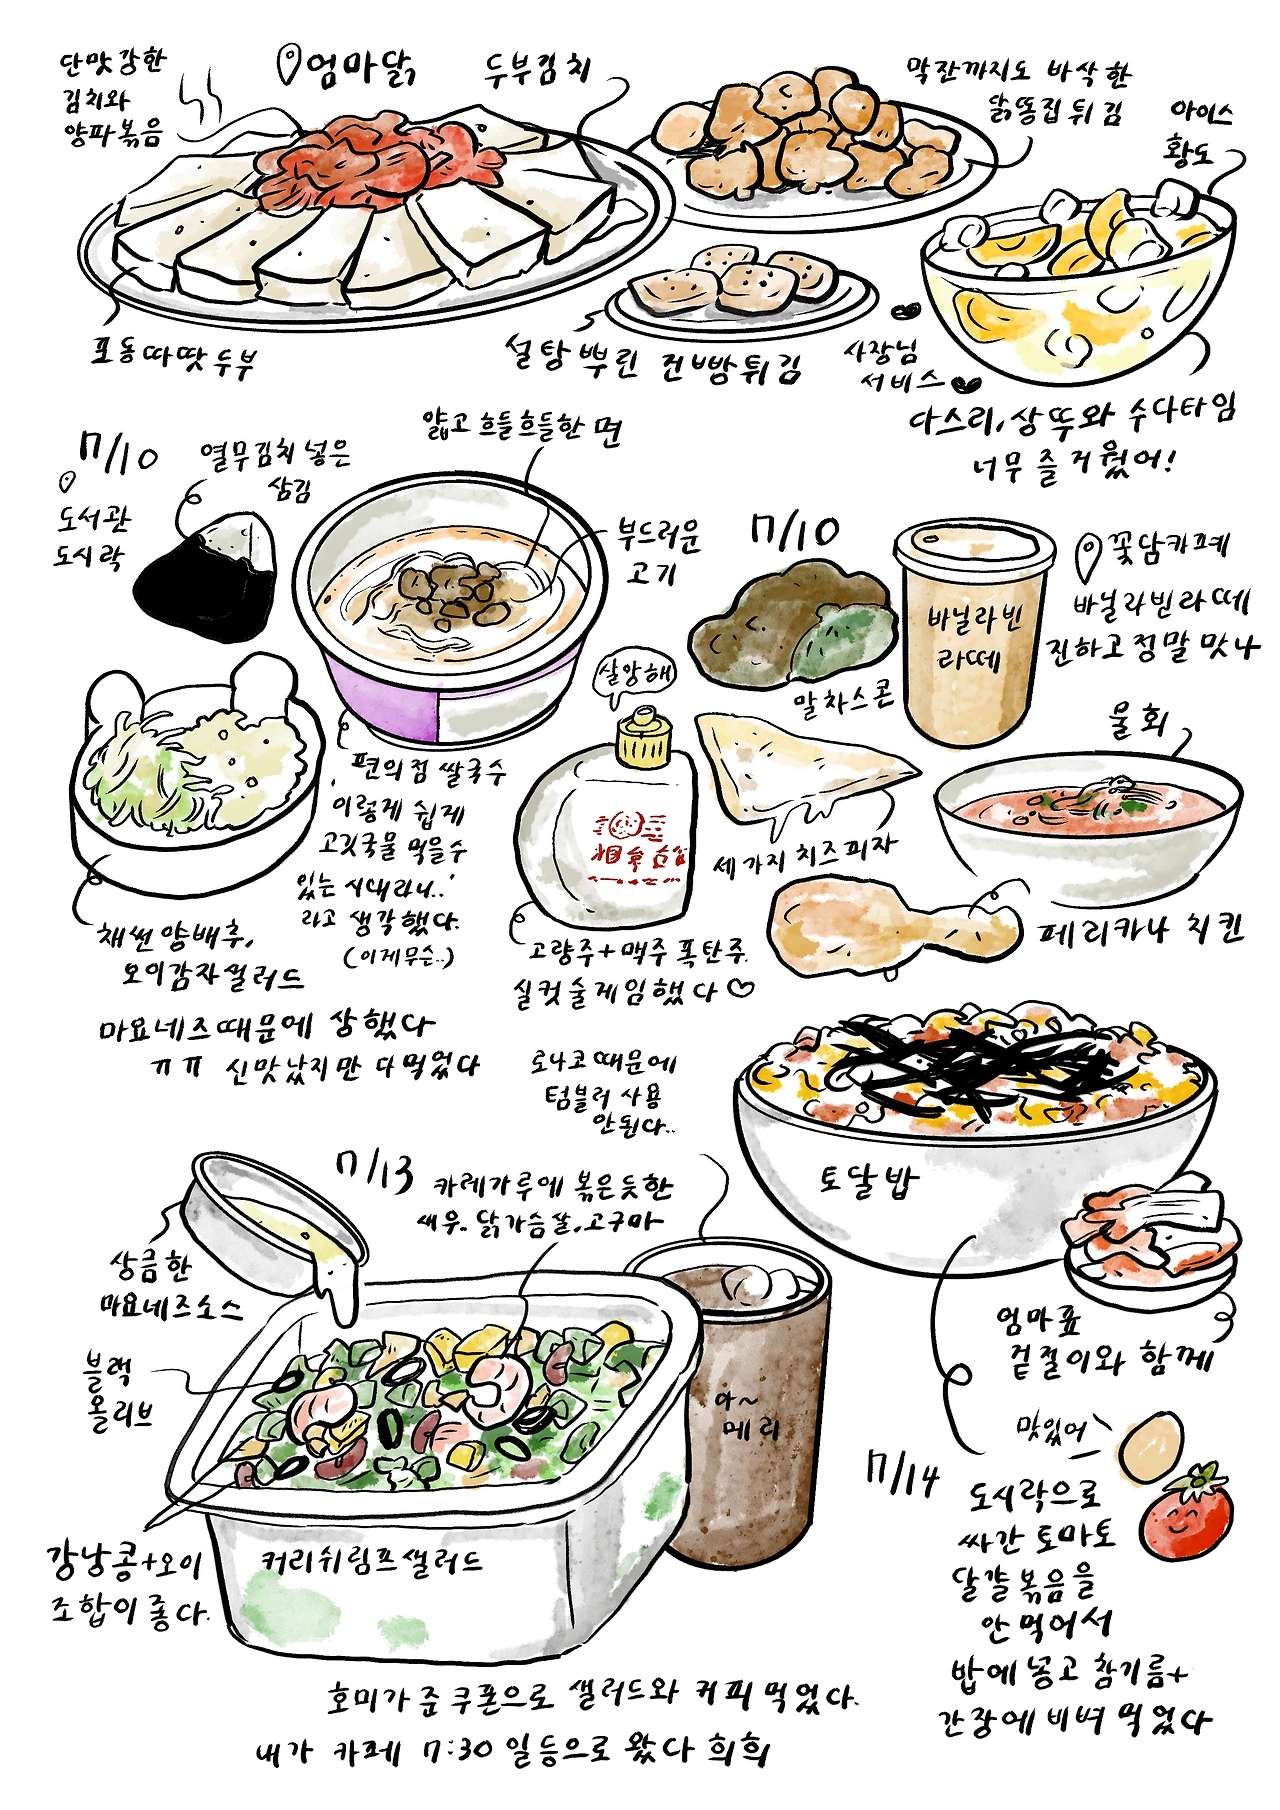 단맛 강한
김치와
양파볶음
엄마닭
두부김치
막잔까지도 바삭한
닭똥집 튀김
아이스
황도
포동따땃두부
설탕 뿌린 건빵튀김
사장님
서비스
다스리, 상뚜와 수다타임
너무 즐거웠어!
7/10
도서관
도시락
열무김치 넣은
삼김
얇고 흐들흐들한 면
부드러운
고기
편의점 쌀국수
'이렇게 쉽게
고깃국물 먹을수
있는 시대라니..'
라고 생각했다.
(이게무슨..)
채썬 양배추,
오이감자샐러드
마요네즈때문에 상했다
ㅠㅠ 신맛났지만 다먹었다
7/10
꽃담카페
바닐라빈라떼
진하고 정말 맛나
바닐라빈
라떼
말차스콘
살앙해
고량주+맥주 폭탄주
실컷 술게임했다♡
세가지 치즈피자
물회
페리카나 치킨
로나코때문에
텀블러 사용
안된다..
7/13
카레가루에 볶은듯한
새우, 닭가슴살, 고구마
상큼한
마요네즈소스
블랙
올리브
강낭콩+오이
조합이 좋다.
커리쉬림프샐러드
아~
메리
호미가 준 쿠폰으로 샐러드와 커피 먹었다.
내가 카페 7:30 일등으로 왔다 희희
토달밥
엄마표
겉절이와 함께
7/14
맛있어
도시락으로
싸간 토마토
달걀볶음을
안 먹어서
밥에 넣고 참기름+
간장에 비벼 먹었다